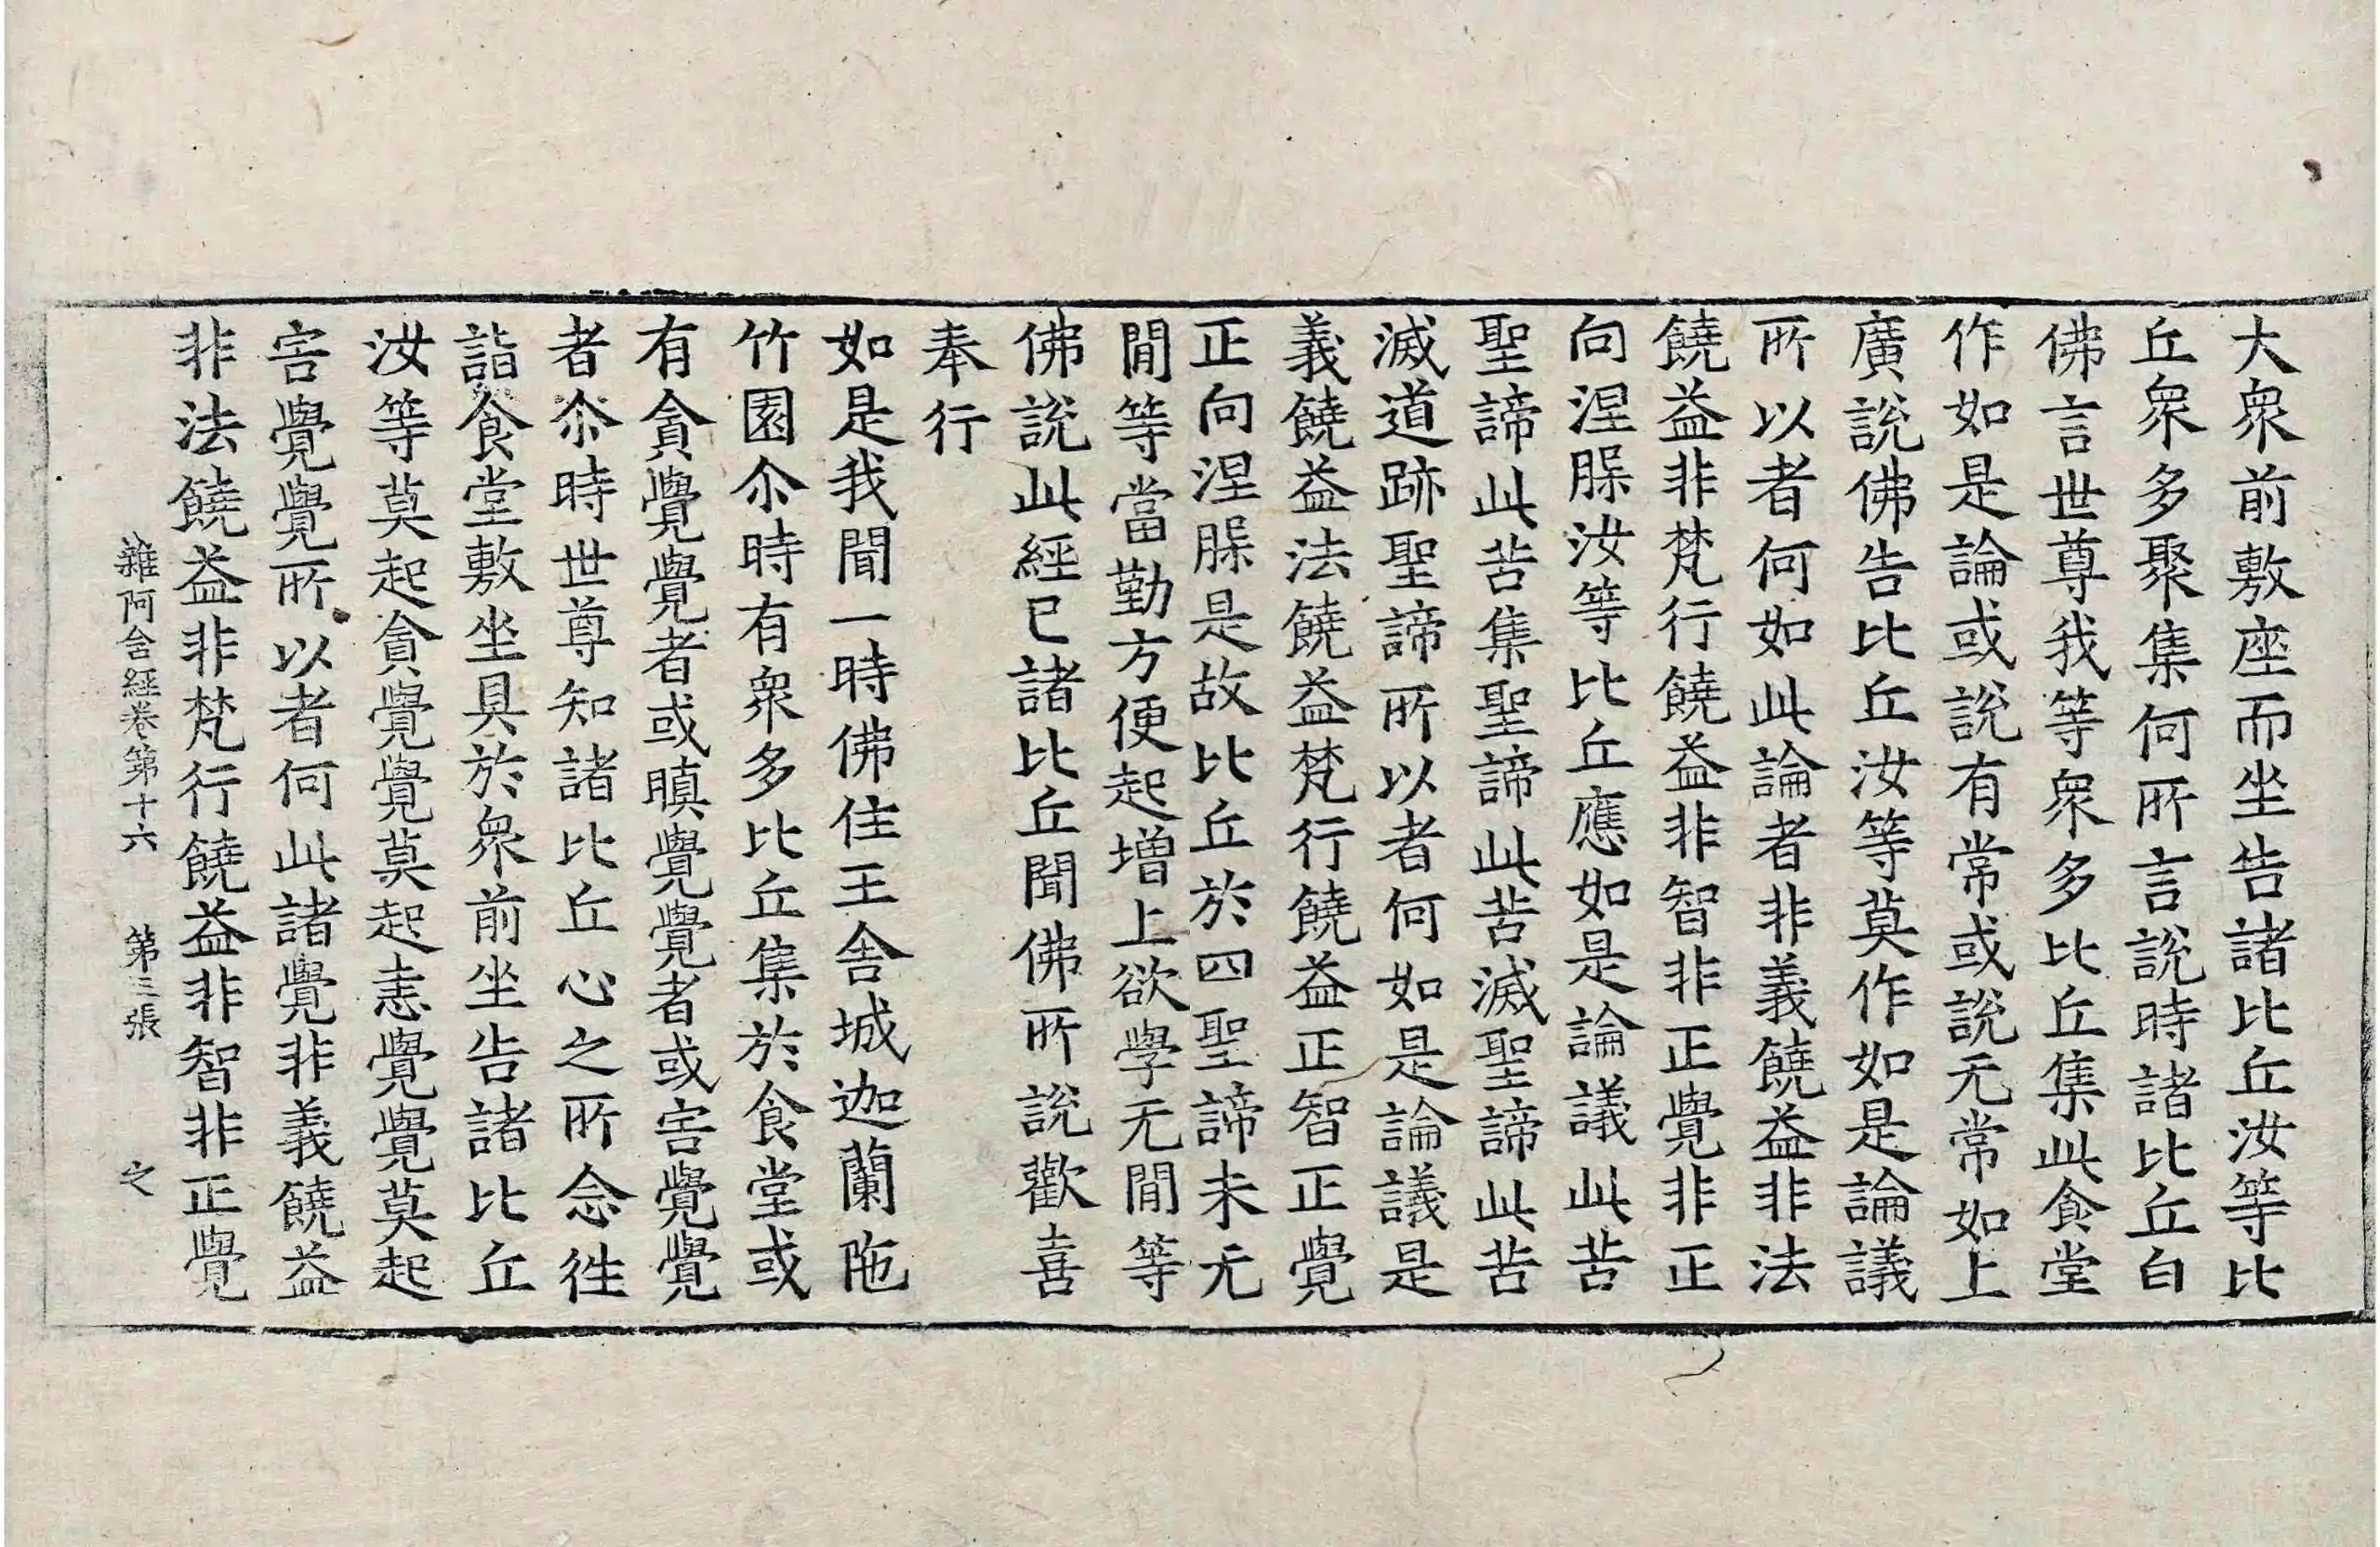 大衆前敷座而坐告諸比丘汝等比
丘衆多聚集何所言說時諸比丘白
佛言世尊我等衆多比丘集此食堂
作如是論或說有常或說无常如上
廣說佛告比丘汝等莫作如是論議
所以者何如此論者非義饒益非法
饒益非梵行饒益非智非正覺非正
向涅槃汝等比丘應如是論議此苦
聖諦此苦集聖諦此苦滅聖諦此苦
滅道跡聖諦所以者何如是論議是
義饒益法饒益梵行饒益正智正覺
正向涅槃是故比丘於四聖諦未无
閒等當勤方便起增上欲學无閒等
佛說此經已諸比丘聞佛所說歡喜
奉行
如是我聞一時佛住王舍城迦蘭陁
竹園尒時有衆多比丘集於食堂或
有貪覺覺者或瞋覺覺者或害覺覺
者尒時世尊知諸比丘心之所念往
詣食堂敷坐具於衆前坐告諸比丘
汝等莫起貪覺覺莫起恚覺覺莫起
害覺覺所以者何此諸覺非義饒益
非法饒益非梵行饒益非智非正覺
雜阿含經卷第十六 第三張 之